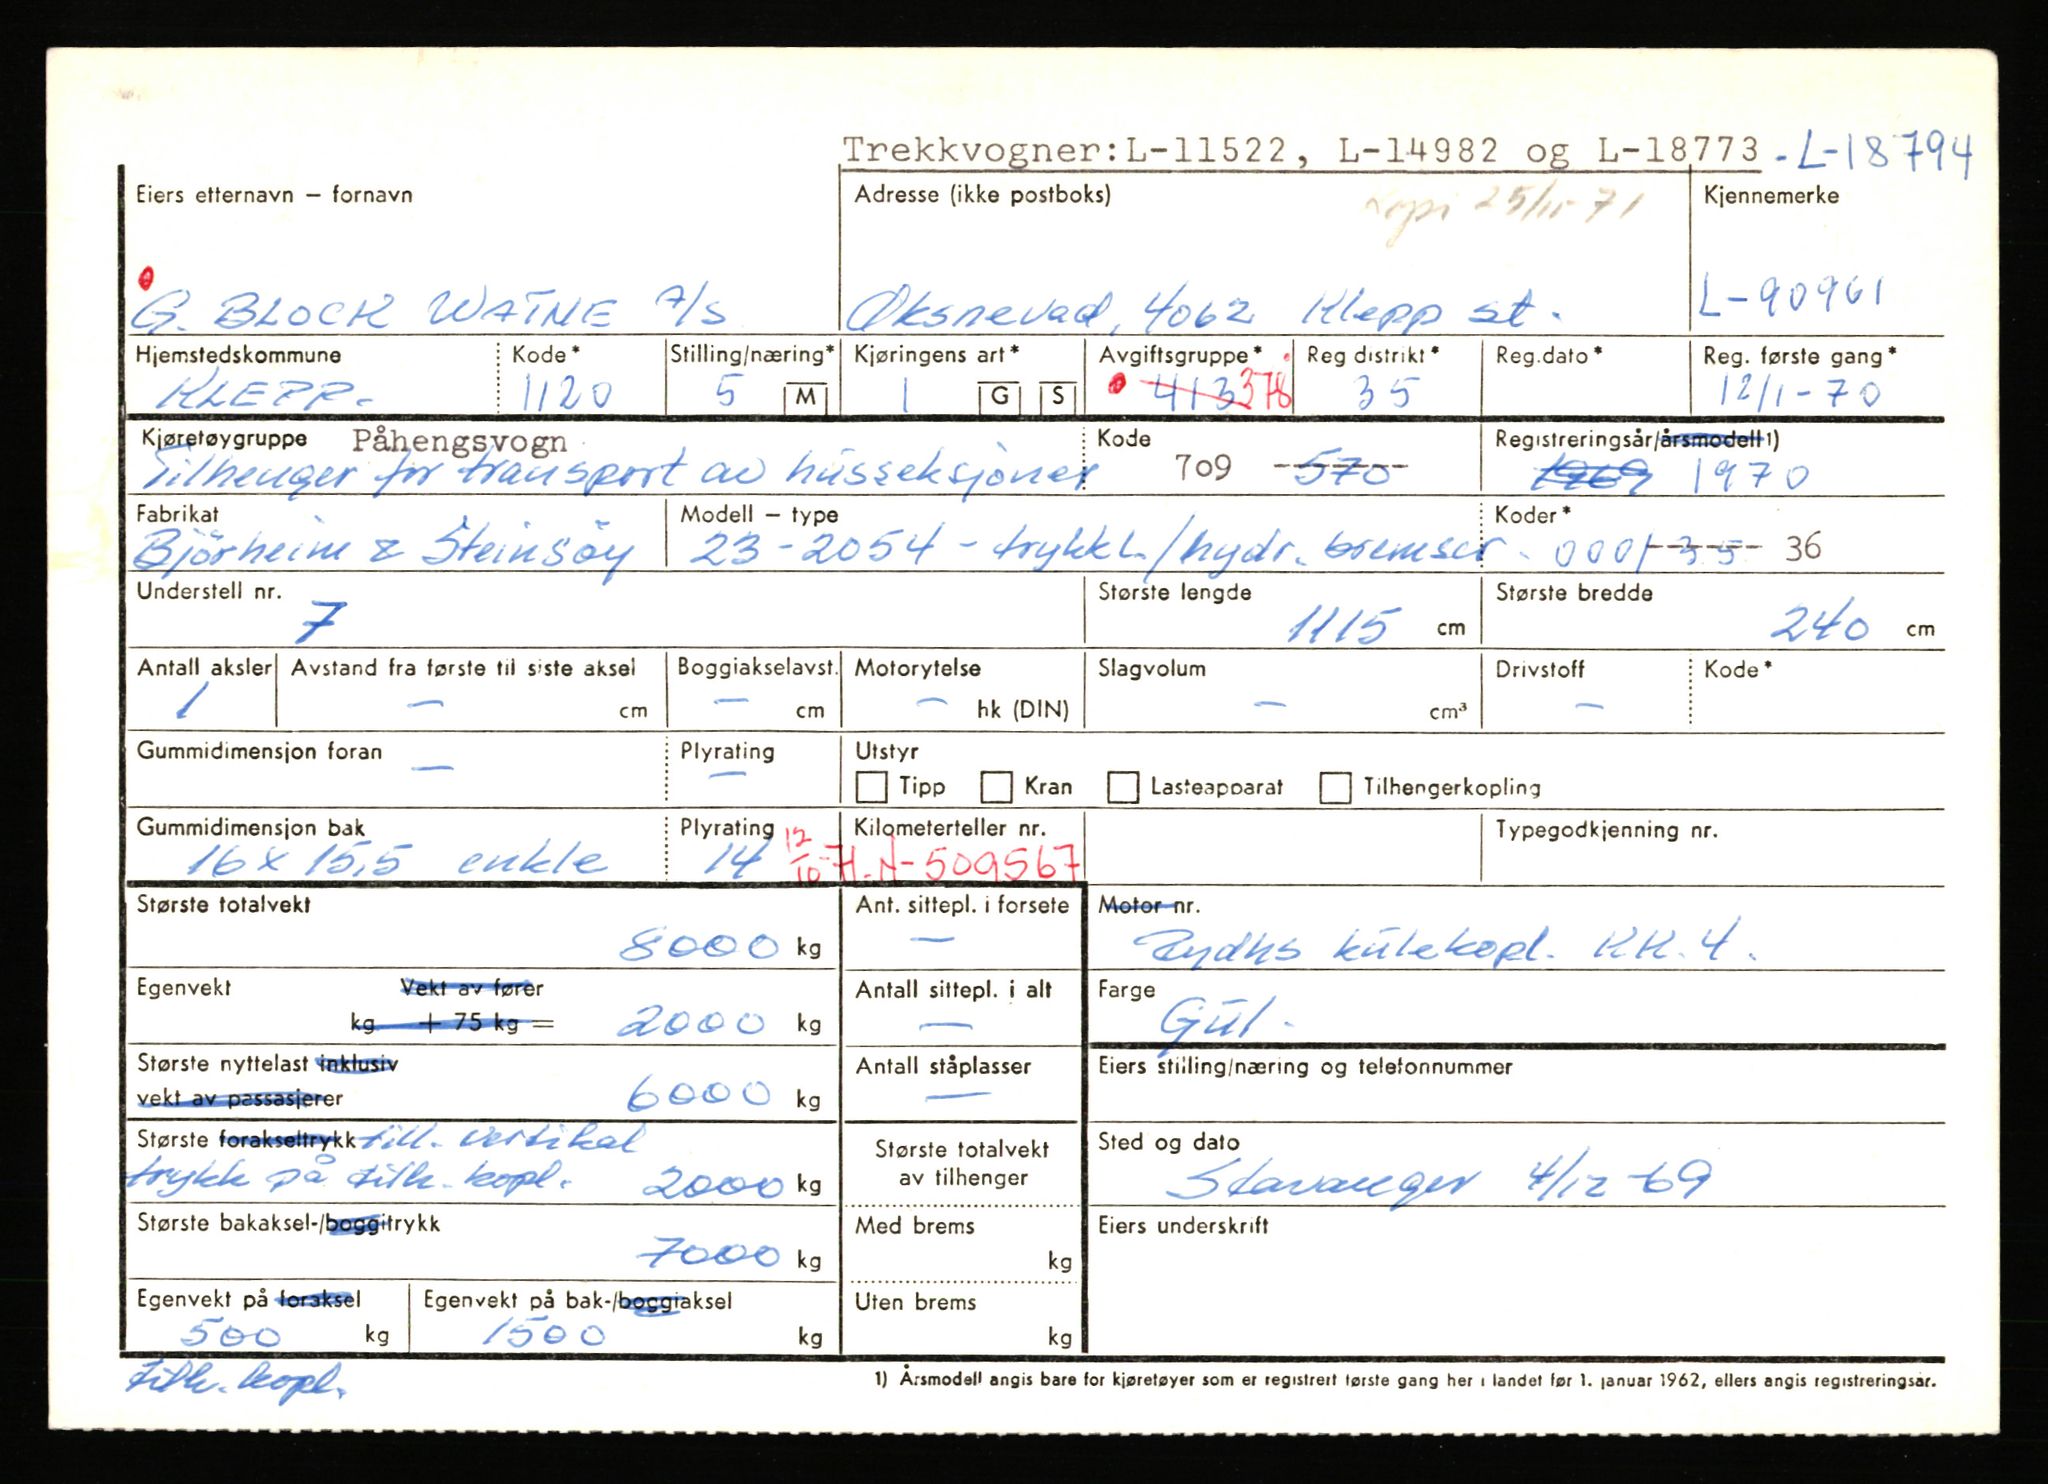 Trekkvogner: L-11522, L-14982 og L-18773 - L-18794
Eiers etternavn – fornavn
Adresse (ikke postboks)
Kopi 25/11-71
Kjennemerke
G. BLOCK WATNE A/S
Øksnevad, 4062 Klepp st.
L-90961
Hjemstedskommune Kode* Stilling/næring* Kjøringens art* Avgiftsgruppe* Reg distrikt* Reg.dato* Reg. første gang*
KLEPP. 1120 5 M 1 G S 413 378 35 12/1-70
Kjøretøygruppe Påhengsvogn Kode Registreringsår/årsmodell 1)
Tilhenger for transport av husseksjoner 709 570 1969 1970
Fabrikat Modell – type Koder*
Bjørheim & Steinsøy 23-2054 - trykkl./hydr. bremser. 0001 35 36
Understell nr. Største lengde Største bredde
7 1115 cm 240 cm
Antall aksler Avstand fra første til siste aksel Boggiakselavst. Motorytelse Slagvolum Drivstoff Kode*
1 – cm – cm – hk (DIN) – cm³ –
Gummidimensjon foran Plyrating Utstyr
– – Tipp Kran Lasteapparat Tilhengerkopling
Gummidimensjon bak Plyrating Kilometerteller nr. Typegodkjenning nr.
16 x 15,5 enkle 14 12/10-71. N-509567
Største totalvekt Ant. sittepl. i forsete Motor nr.
8000 kg – kulekopl. KK. 4.
Egenvekt Vekt av fører Antall sittepl. i alt Farge
kg + 75 kg = 2000 kg – Gul.
Største nyttelast inklusiv Antall ståplasser Eiers stilling/næring og telefonnummer
vekt av passasjerer 6000 kg –
Største forakseltrykk till. vertikal Største totalvekt av tilhenger Sted og dato
trykk på tilh. kopl. 2000 kg Stavanger 4/12-69
Største bakaksel-/boggitrykk Med brems Eiers underskrift
7000 kg kg
Egenvekt på foraksel Egenvekt på bak-/boggiaksel Uten brems
500 kg 1500 kg kg
tilh. kopl.
1) Årsmodell angis bare for kjøretøyer som er registrert første gang her i landet før 1. januar 1962, ellers angis registreringsår.